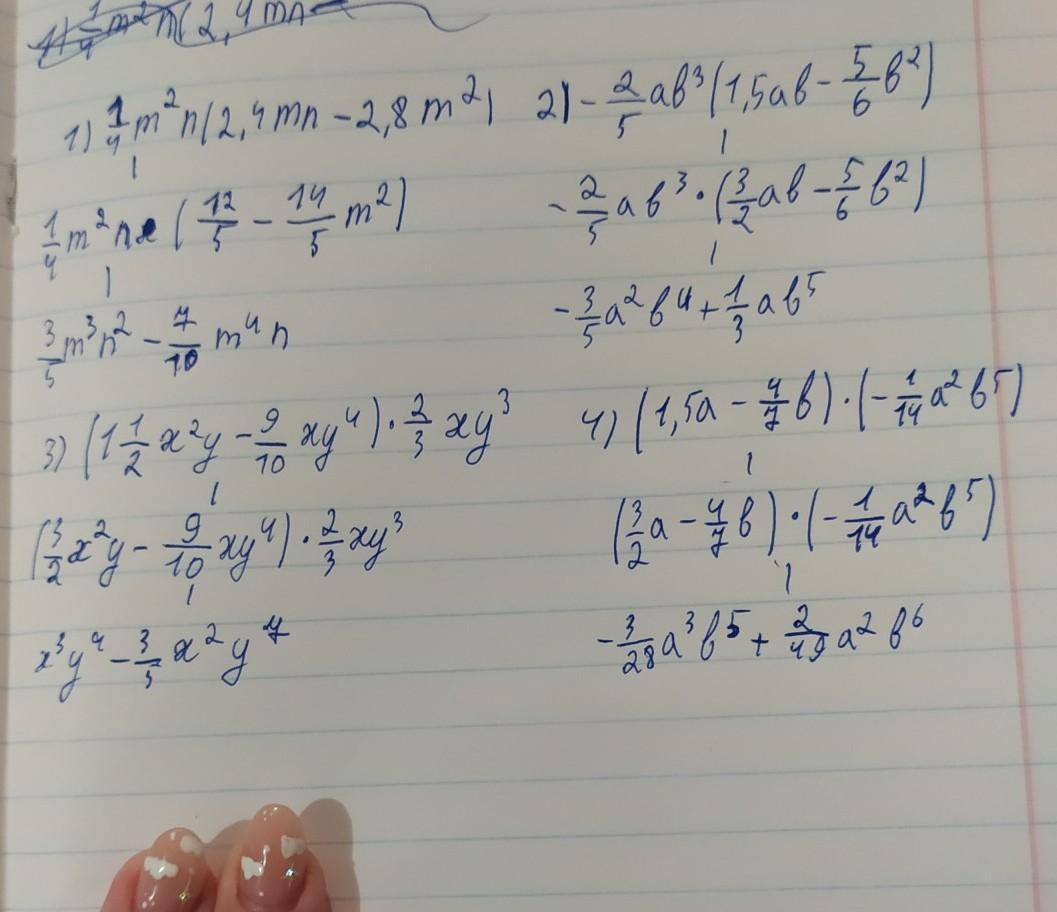 1) 1/4 m²n(2,4mn
1) 1/4 m²n(2,4mn - 2,8m²)
1/4 m²n (12/5 - 14/5 m²)
3/5 m³n² - 7/10 m⁴n
2) - 2/5 ав³(1,5ав - 5/6 в²)
- 2/5 ав³ · (3/2 ав - 5/6 в²)
- 3/5 а²в⁴ + 1/3 ав⁵
3) (1 1/2 x²y - 9/10 xy⁴) · 2/3 xy³
(3/2 x²y - 9/10 xy⁴) · 2/3 xy³
x³y⁴ - 3/5 x²y⁷
4) (1,5а - 4/7 в) · (- 1/14 а²в⁵)
(3/2 а - 4/7 в) · (- 1/14 а²в⁵)
- 3/28 а³в⁵ + 2/49 а²в⁶